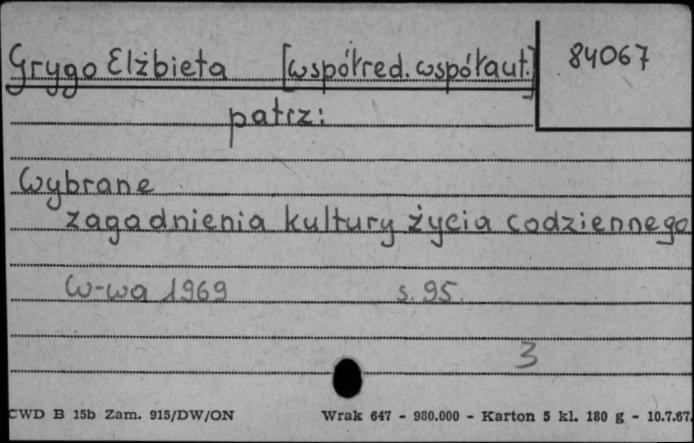 Grygo Elżbieta [współred. współaut.] 84067
patrz:
Wybrane
zagadnienia kultury życia codziennego
W-wa 1969 s. 95.
3
CWD B 15b Zam. 915/DW/ON Wrak 647 - 980.000 - Karton 5 kl. 180 g - 10.7.67.